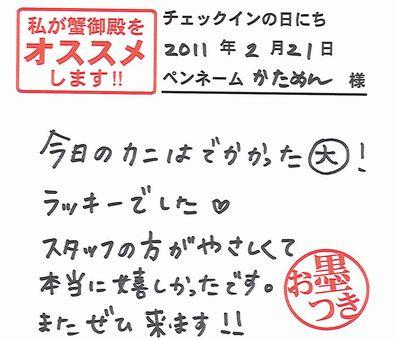 私が蟹御殿を
オススメ
します!!
チェックインの日にち
2011 年 2 月 21 日
ペンネーム かためん 様
今日のカニはでかかった大!
ラッキーでした♡
スタッフの方がやさしくて
本当に嬉しかったです。
またぜひ来ます!!
お墨つき